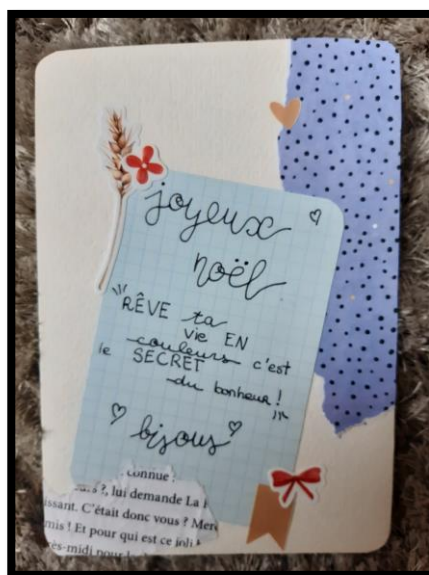 joyeux
noël
"RÊVE ta
vie EN
couleurs c'est
le SECRET
du bonheur !
"
bisous
connue :
?, lui demande La
issant. C'était donc vous ? Merc
mis ! Et pour qui est ce joli
ès-midi pour